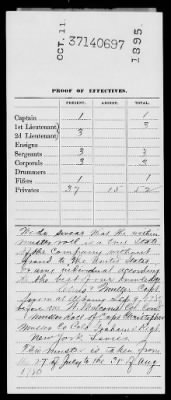 OCT. 11
37140697
1895.
PROOF OF EFFECTIVES.
PRESENT. ABSENT. TOTAL.
Captain 1 1
1st Lieutenant
2d Lieutenant } 3 3
Ensigns
Sergeants 3 3
Corporals 3 3
Drummers
Fifers 1 1
Privates 37 15 52
We do swear that the within
muster roll is a true State
of the Company without
fraud to the United States
or any individual according
to the best of our knowledge
Capt
Sworn at Albany Sept 9 1780
before me
Muster Roll of Capt
Musters Co Col. Graham's Regt.
New York Levies
This muster is taken from
the 27 of July to the 31 of Aug
1780